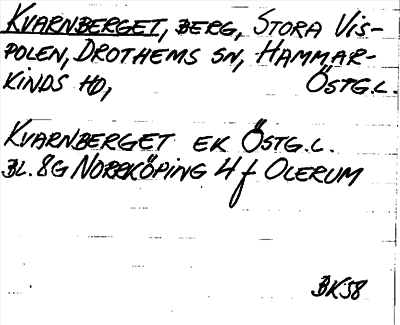 KVARNBERGET, BERG, STORA VIS-
POLEN, DROTHEMS SN, HAMMAR-
KINDS HD, ÖSTG.L.
KVARNBERGET EK ÖSTG.L.
BL. 8G NORRKÖPING 4 f OLERUM
BK58